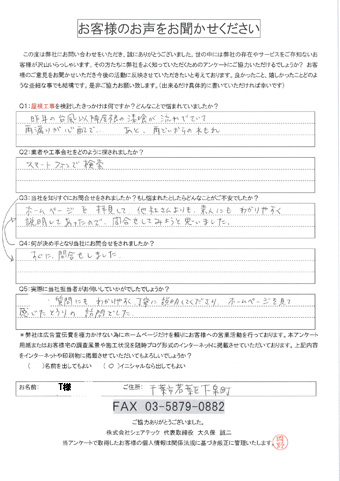 お客様のお声をお聞かせください
この度は弊社にお問い合わせをいただき、誠にありがとうございました。世の中には弊社の存在やサービスをご存知ないお
客様が沢山いらっしゃいます。その方たちに弊社をよく知っていただくためのアンケートにご協力いただけるでしょうか?お
客様のご意見をお聞かせいただき今後の活動に反映させていただきたいと考えております。良かったこと、嬉しかったことどのよ
うな些細な事でも結構です、是非ご協力お願い致します。(出来るだけ具体的に書いていただければ幸いです)
Q1:屋根工事を検討したきっかけは何ですか?どんなことで悩まれていましたか?
昨年の台風以降屋根の漆喰が流れでていて
雨漏りが心配で、 あと、雨どいからの水もれ
Q2:業者や工事会社をどのように探されましたか?
スマートフォンで検索
Q3:当社を知りすぐにお問合せをしましたか?もし悩まれたとしたらどんなことがご不安でしたか?
ホームページを拝見して他社さんよりも、素人にもわかりやすく
説明してあったので、問合せしてみようと思いました。
Q4:何が決め手となり当社にお問合せをされましたか?
問合せしました
Q5:実際に当社担当者がお伺いしていかがでしたでしょうか?
質問にもわかりやすく丁寧に説明してくださり、ホームページを見て
感じたとうりの訪問でした。
*弊社は広告宣伝費を極力かけない為にホームページだけを頼りにお客様への営業活動を行っております。本アンケート
用紙またはお客様宅の調査風景や施工状況を随時ブログ形式のインターネットに掲載させていただいております。上記内容
をインターネットや印刷物に掲載させていただいてもよろしいでしょうか?
( )名前を出してもよい ( ○ )イニシャルなら出してもよい
お名前: T様 ご住所: 千葉市若葉区下泉町
FAX 03-5879-0882
ご協力ありがとうございました。
株式会社シェアテック 代表取締役 大久保 誠二
当アンケートで取得したお客様の個人情報は関係法規に基づき厳正に管理いたします。